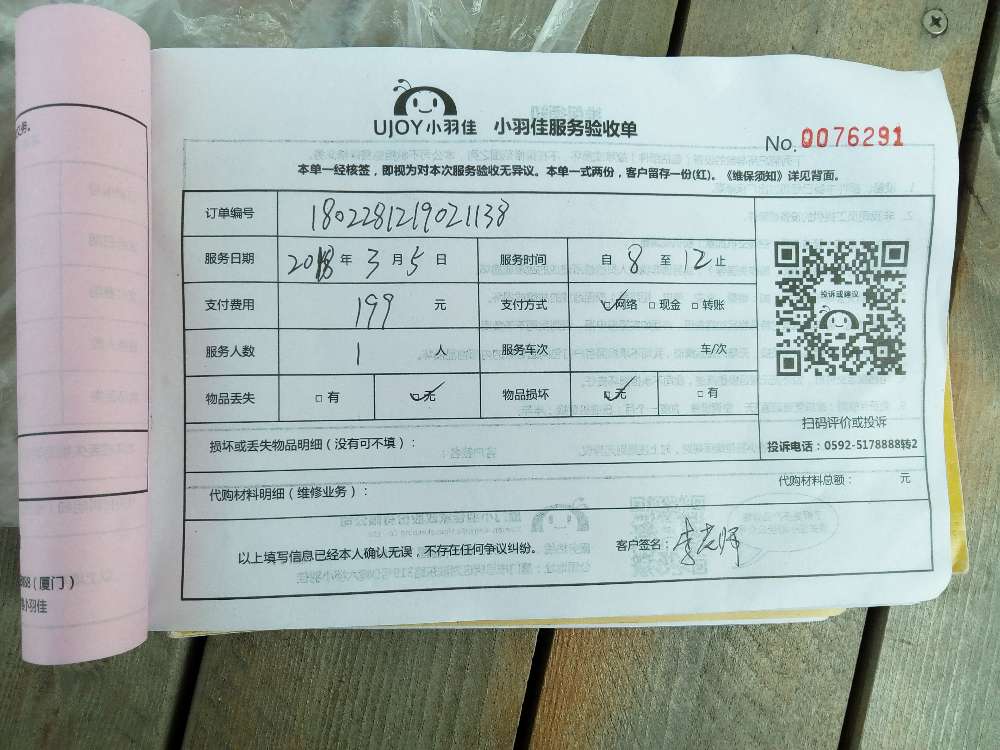 UJOY小羽佳 小羽佳服务验收单
No. 0076291
本单一经核签，即视为对本次服务验收无异议。本单一式两份，客户留存一份(红)。《维保须知》详见背面。
订单编号 1802281219021138
服务日期 2018 年 3 月 5 日 服务时间 自 8 至 12 止
支付费用 199 元 支付方式 ☑网络 □现金 □转账
服务人数 1 人 服务车次 车/次
物品丢失 □有 ☑无 物品损坏 ☑无 □有
投诉或建议
扫码评价或投诉
投诉电话：0592-5178888转2
损坏或丢失物品明细（没有可不填）：
代购材料明细（维修业务）： 代购材料总额： 元
以上填写信息已经本人确认无误，不存在任何争议纠纷。 客户签名：李老师
（厦门）
小羽佳